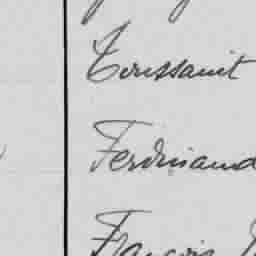 Toussaint
Ferdinand
François